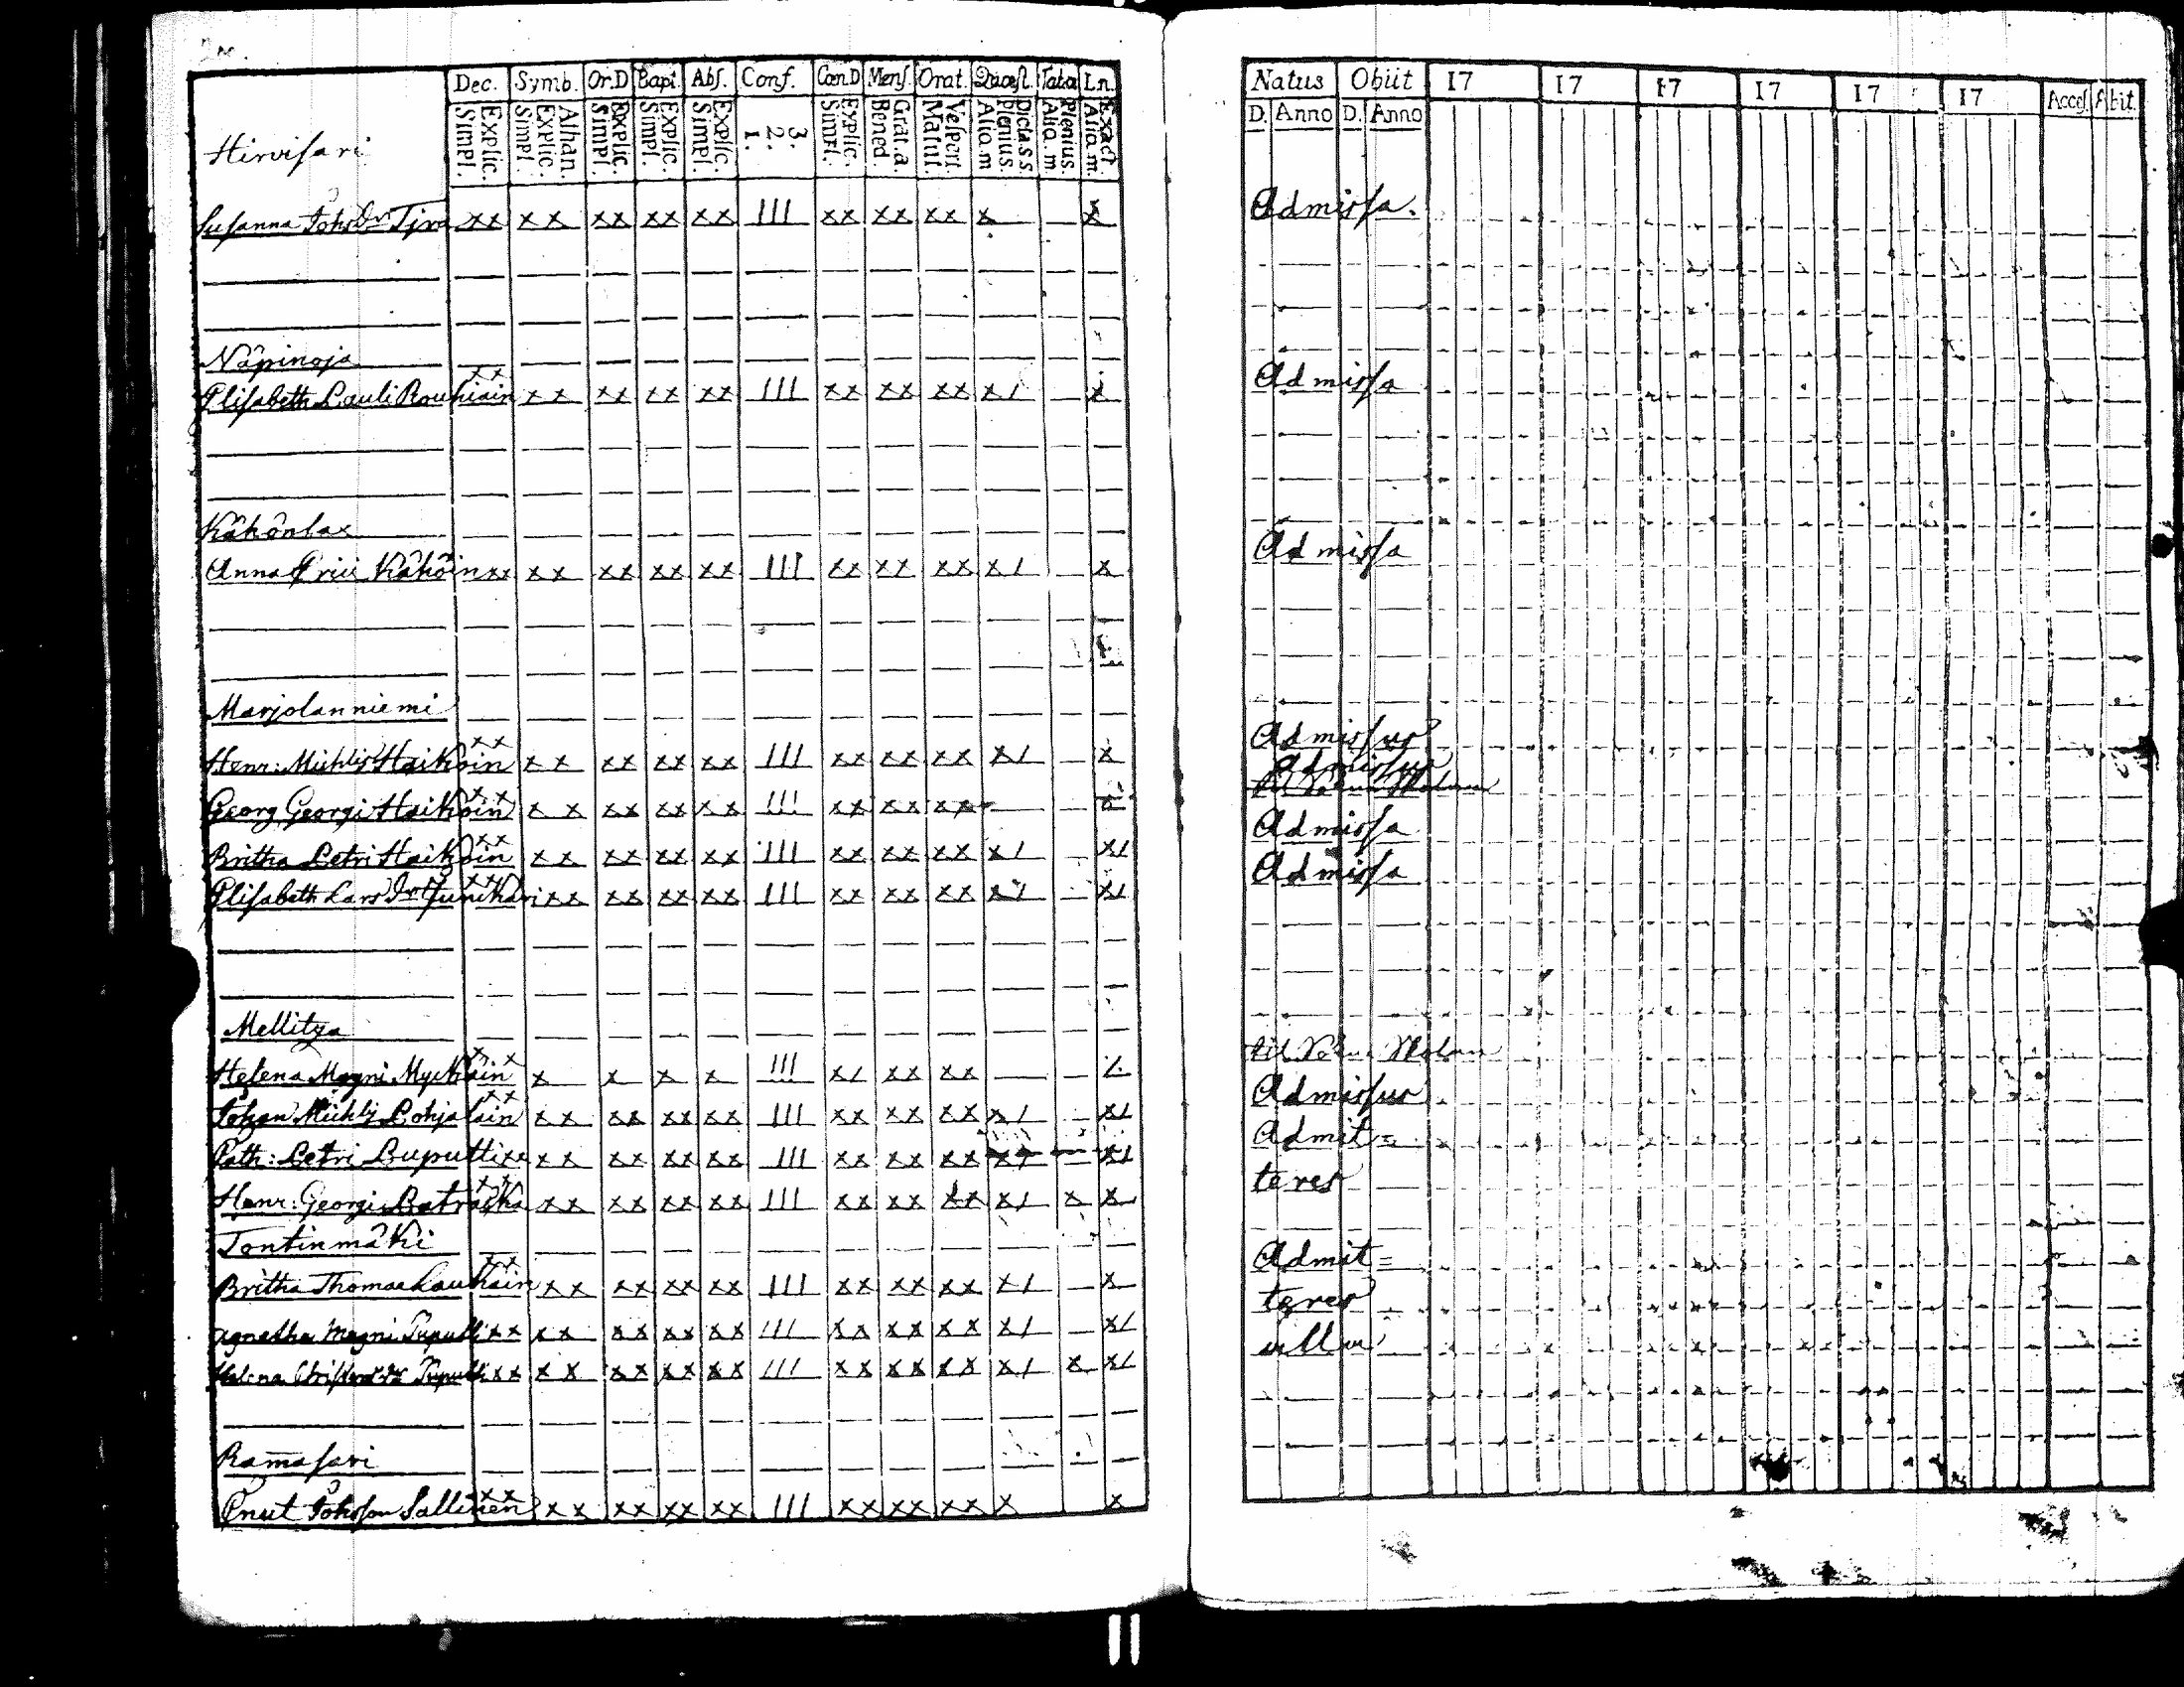 Dec. Symb. Or.D Bapt. Abſ. Conf. Cœn.D Menſ. Orat. Quæſt. Tab.œ Ln.
Simpl. Explic. Simpl. Explic. Athan. Simpl. Explic. Simpl. Explic. Simpl. Explic. 1. 2. 3. Simpl. Explic. Bened. Grat.a. Matut. Veſpert. Aliq.m Plenius. Dicta s.s Aliq.m Plenius. Aliq.m. Exact.
Hirviſari
Suſanna Johs Dr Tjra xx xx xx xx xx III xx xx xx x x
Näpinoja
Eliſabeth Pauli Rouhiain xx xx xx xx xx III xx xx xx x/ x
Kähönlax
Anna Erici Kähöin xx xx xx xx xx III xx xx xx x/ x
Marjolanniemi
Henr: Michlij Haikoin xx xx xx xx xx III xx xx xx x/ x
Georg Georgi Haikoin xx x x xx xx xx III xx xx xx x
Britha Petri Haikoin xx xx xx xx xx III xx xx xx x/ x/
Eliſabeth Lars Dr xx xx xx xx xx III xx xx xx x/ x/
Mellitza
Helena Magni Myckäin x x x x x x III x/ xx xx /.
Johan Michlij Pohjalain xx xx xx xx xx III xx xx xx x/ x/
Cath: Petri Puputti xx xx xx xx xx III xx xx xx x/ x/
Henr: Georgi Ratraska xx xx xx xx xx III xx xx xx x/ x x
Tontinmäki
Britha Thomae Laukain xx xx xx xx xx III xx xx xx x/ x
Agnetha Magni Puputti xx xx xx xx xx III xx xx xx x/ x/
Helena Puputti xx xx xx xx xx III xx xx xx x/ x x/
Ramaſari
Cnut Johsſon Sallinen xx xx xx xx xx III xx xx xx x x
Natus Obiit 17 17 17 17 17 17 Acceſ. Abit.
D. Anno D. Anno
Admiſſa.
Admiſſa
Admiſſa
Admiſſus
Admiſſus
Admiſſa
Admiſſa
Admiſſus
Admit=
teres
Admit=
teres